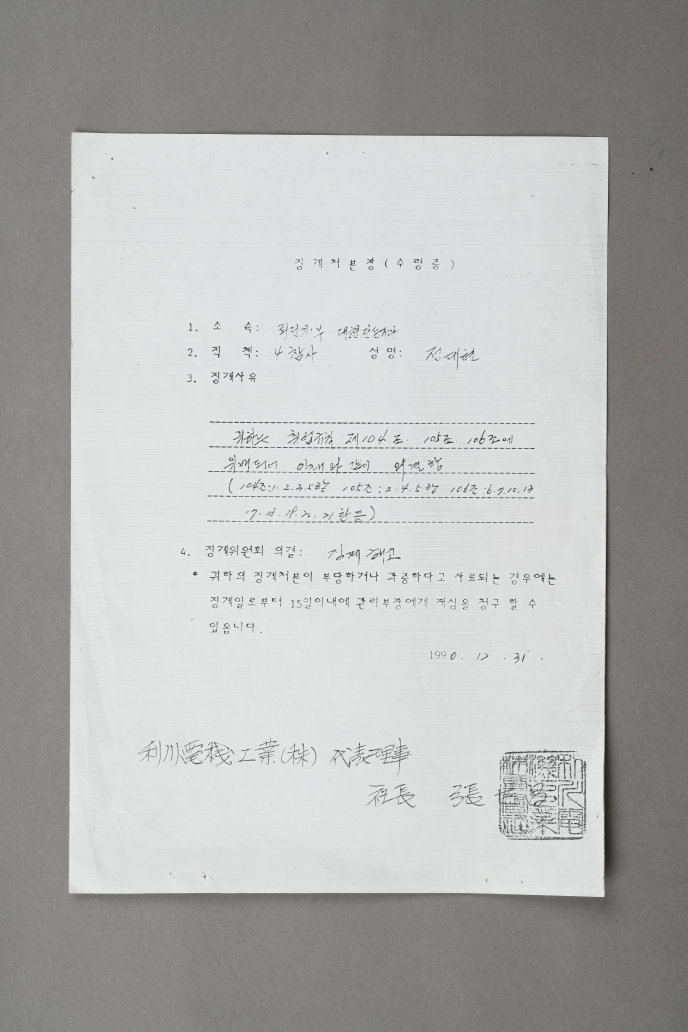 징계처분장(수령증)
1. 소 속:
2. 직 책: 4급사 성 명:
3. 징계사유
귀하는 취업규칙 제104조. 105조. 106조에
위배되어 아래와 같이 의결함
(104조:1.2.3.5항 105조:2.4.5항 106조:6.7.10.13
17.18.19.20.21항 등)
4. 징계위원회 의결: 징계해고
* 귀하의 징계처분이 부당하거나 과중하다고 사료되는 경우에는
징계일로부터 15일이내에 관리부장에게 재심을 청구 할 수
있읍니다.
1990. 12. 31.
利川電機工業(株) 代表理事
社長 張